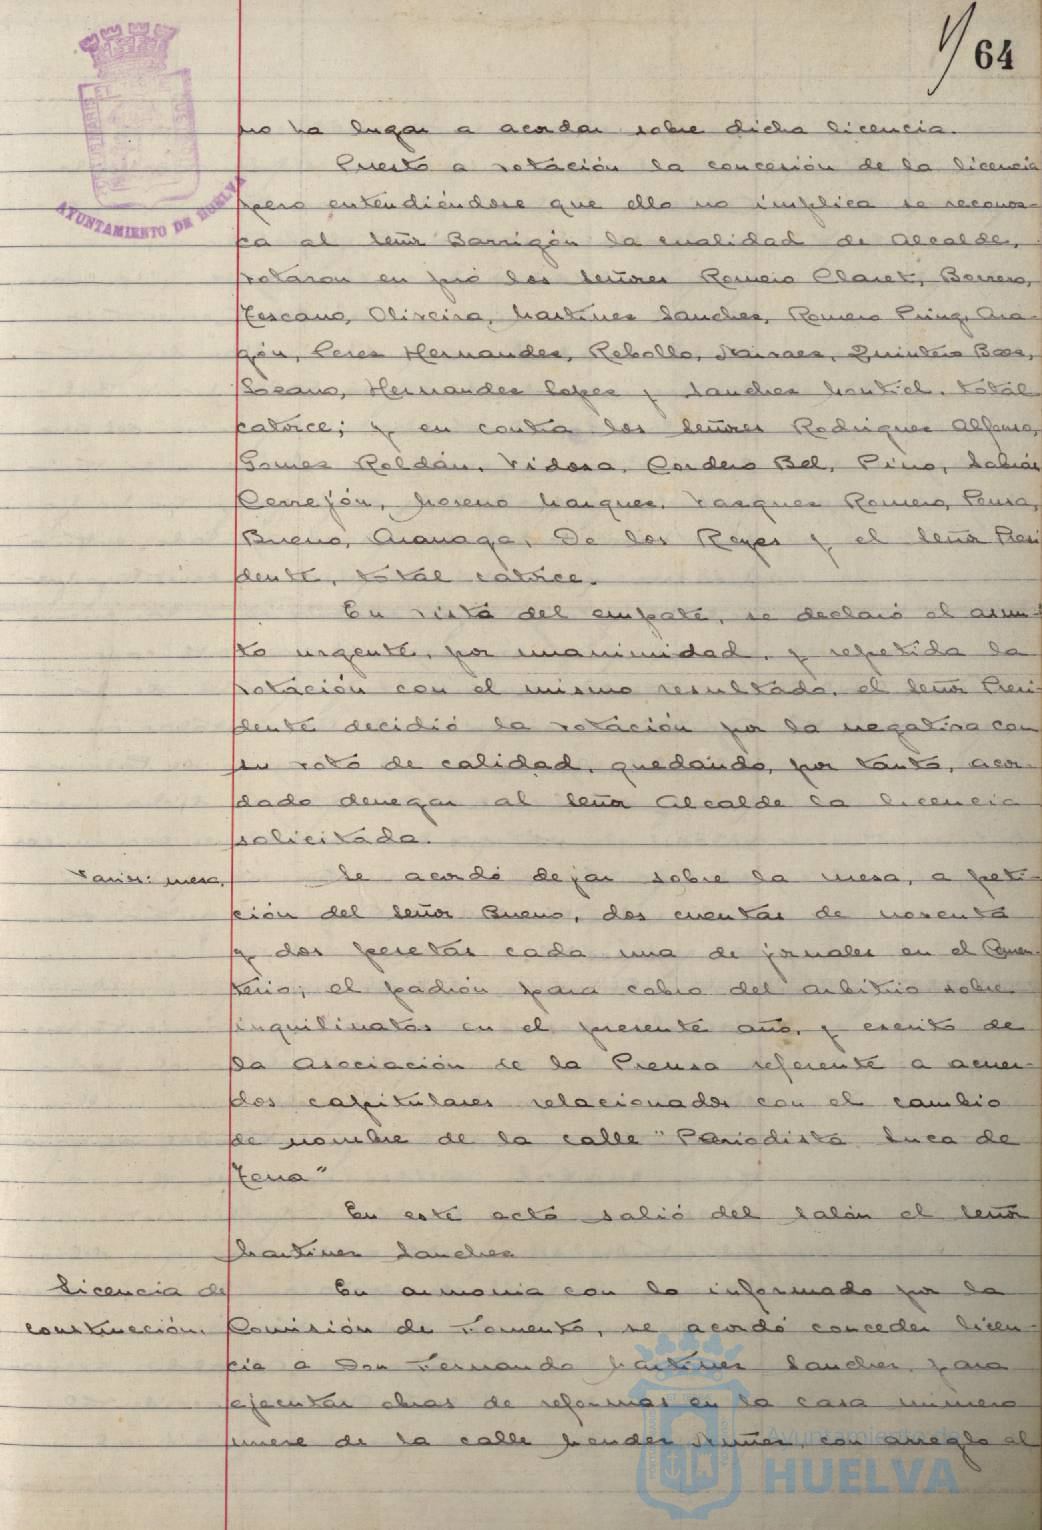 64
AYUNTAMIENTO DE HUELVA
no ha lugar a acordar sobre dicha licencia.
Puesto a votación la concesión de la licencia
pero entendiéndose que ello no implica se reconoz-
ca al señor Barrigón la cualidad de Alcalde,
votaron en pró los señores Romero Claret, Borrero,
Tescano, Oliveira, Martinez Sanchez, Romero Puig, Ara-
gón, Perez Hernandez, Rebollo, Narvaez, Quintero Baez,
Lozano, Hernandez Lopez y Sanchez Montiel, total
catorce; y en contra los señores Rodriguez Alfonso,
Gomez Roldán, Vidosa, Cordero Bel, Pino,
Cerrejón, Moreno Marquez, Vazquez Romero, Ponsa,
Bueno, Aranaga, De los Reyes y el señor Presi
dente, total catorce.
En vista del empate, se declaró el asun-
to urgente, por unanimidad, y repetida la
votación con el mismo resultado, el señor Presi-
dente decidió la votación por la negativa con
su voto de calidad, quedando, por tanto, acor-
dado denegar al señor Alcalde la licencia
solicitada.
Varios: mesa.
Se acordó dejar sobre la mesa, a peti-
ción del señor Bueno, dos cuentas de noventa
y dos pesetas cada una de jornales en el Cemen-
terio; el padrón para cobro del arbitrio sobre
inquilinatos en el presente año, y escrito de
la Asociación de la Prensa referente a acuer-
dos capitulares relacionados con el cambio
de nombre de la calle "Periodista Luca de
Tena"
En este acto salió del salón el señor
Martinez Sanchez
Licencia de
construcción.
En armonia con lo informado por la
Comisión de Fomento, se acordó conceder licen-
cia a Don Fernando Martinez Sanchez, para
ejecutar obras de reformas en la casa número
nueve de la calle Mendez Nuñez, con arreglo al
Ayuntamiento de
HUELVA